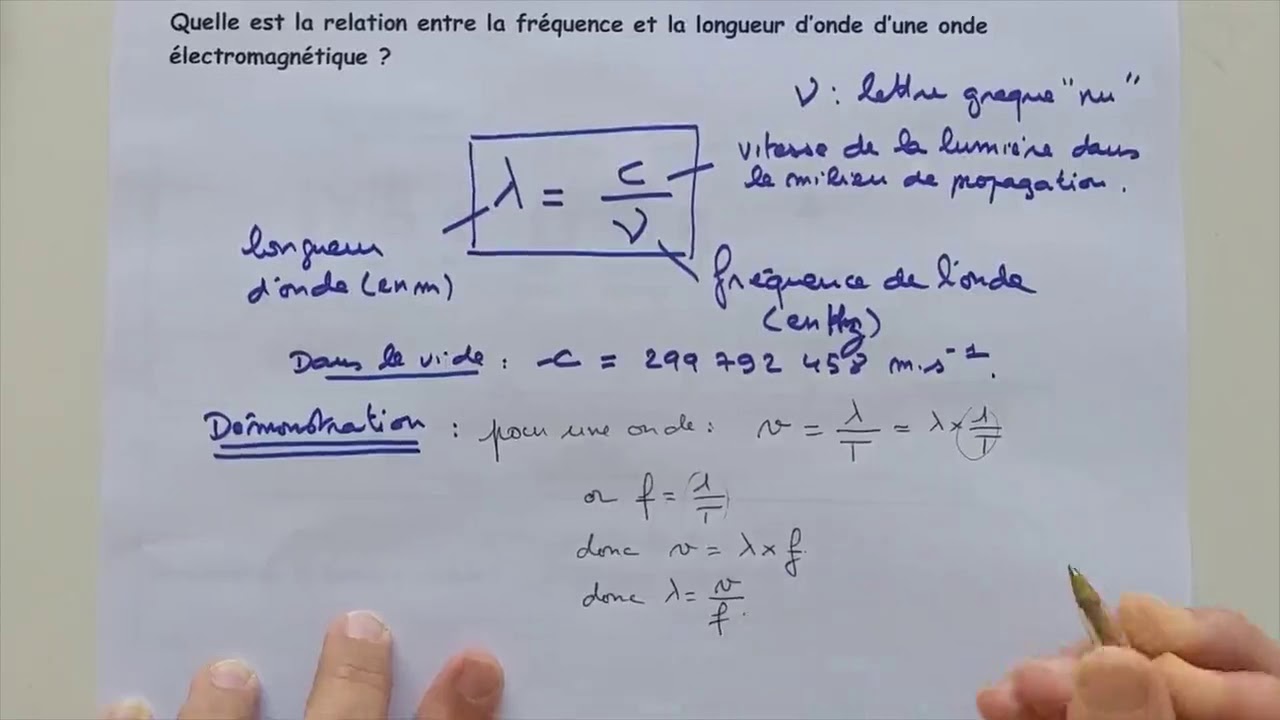 Quelle est la relation entre la fréquence et la longueur d'onde d'une onde
électromagnétique ?
ν : lettre grecque "nu"
λ = c/ν
vitesse de la lumière dans
le milieu de propagation.
longueur
d'onde (en m)
fréquence de l'onde
(en Hz)
Dans le vide : c = 299 792 458 m.s⁻¹.
Démonstration : pour une onde : v = λ/T = λ × (1/T)
or f = (1/T)
donc v = λ × f.
donc λ = v/f.